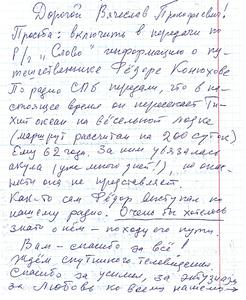 Дорогой Вячеслав Прокофьевич!
Просьба: включить в передачи по
Р/з "Слово" информацию о пу-
тешественнике Фёдоре Конюхове
По радио СПб передали, что в на-
стоящее время он пересекает Ти-
хий океан на вёсельной лодке
(маршрут рассчитан на 200 суток)
Ему 62 года. За ним увязалась
акула (уже много дней!), но опас-
ности она не представляет.
Как-то сам Фёдор выступал по
нашему радио. Очень бы хотелось
знать о нём - походу его пути.
Вам - спасибо за всё!
Ждём спутникового телевидения
Спасибо за усилия, за энтузиазм
за любовь ко всему